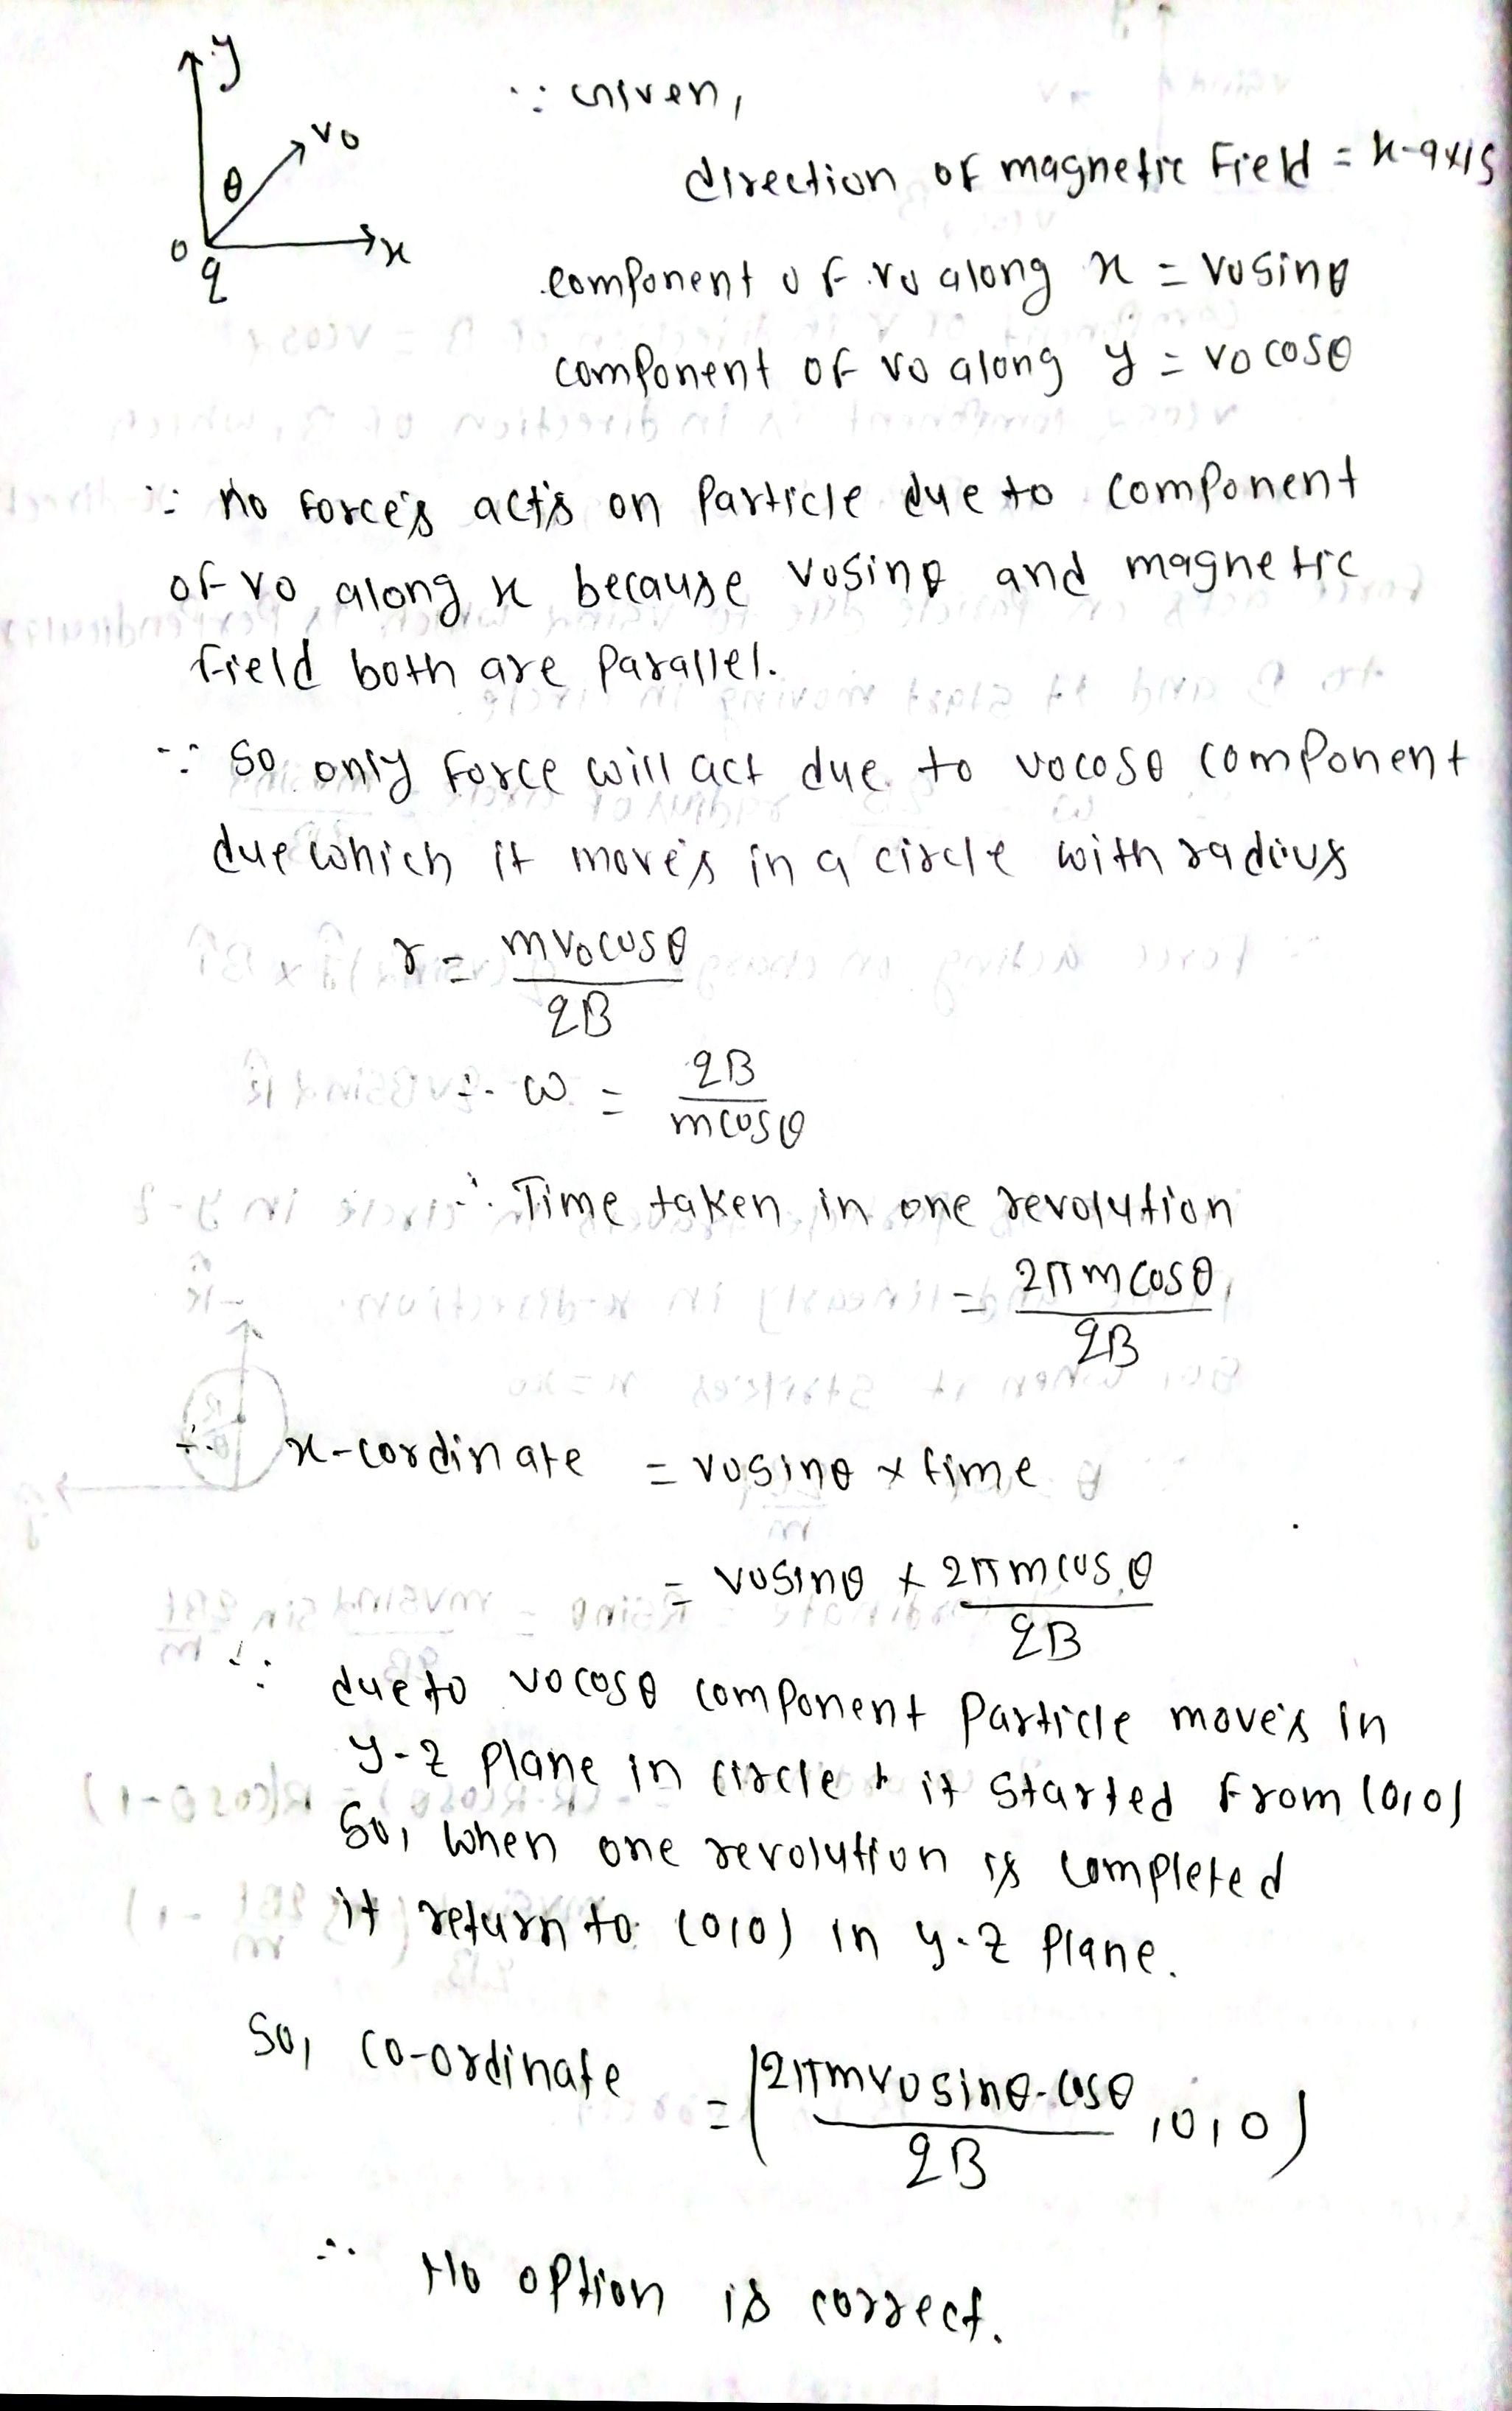 y
v0
θ
0
q
x
∵ Given,
direction of magnetic Field = x-axis
component of v0 along x = v0sinθ
component of v0 along y = v0cosθ
∵ no force's act's on Particle due to component
of v0 along x because v0sinθ and magnetic
field both are Parallel.
∵ So only force will act due to v0cosθ component
due which it move's in a circle with radius
r = mv0cosθ / qB
∴ ω = qB / mcosθ
∴ Time taken in one revolution
= 2πmcosθ / qB
∴ x-cordinate = v0sinθ × time
= v0sinθ × 2πmcosθ / qB
∵ due to v0cosθ component Particle move's in
y-z Plane in circle & it started from (0,0)
So, when one revolution is completed
it return to (0,0) in y-z Plane.
So, co-ordinate = (2πmv0sinθ.cosθ / qB ,0,0)
∴ No option is correct.